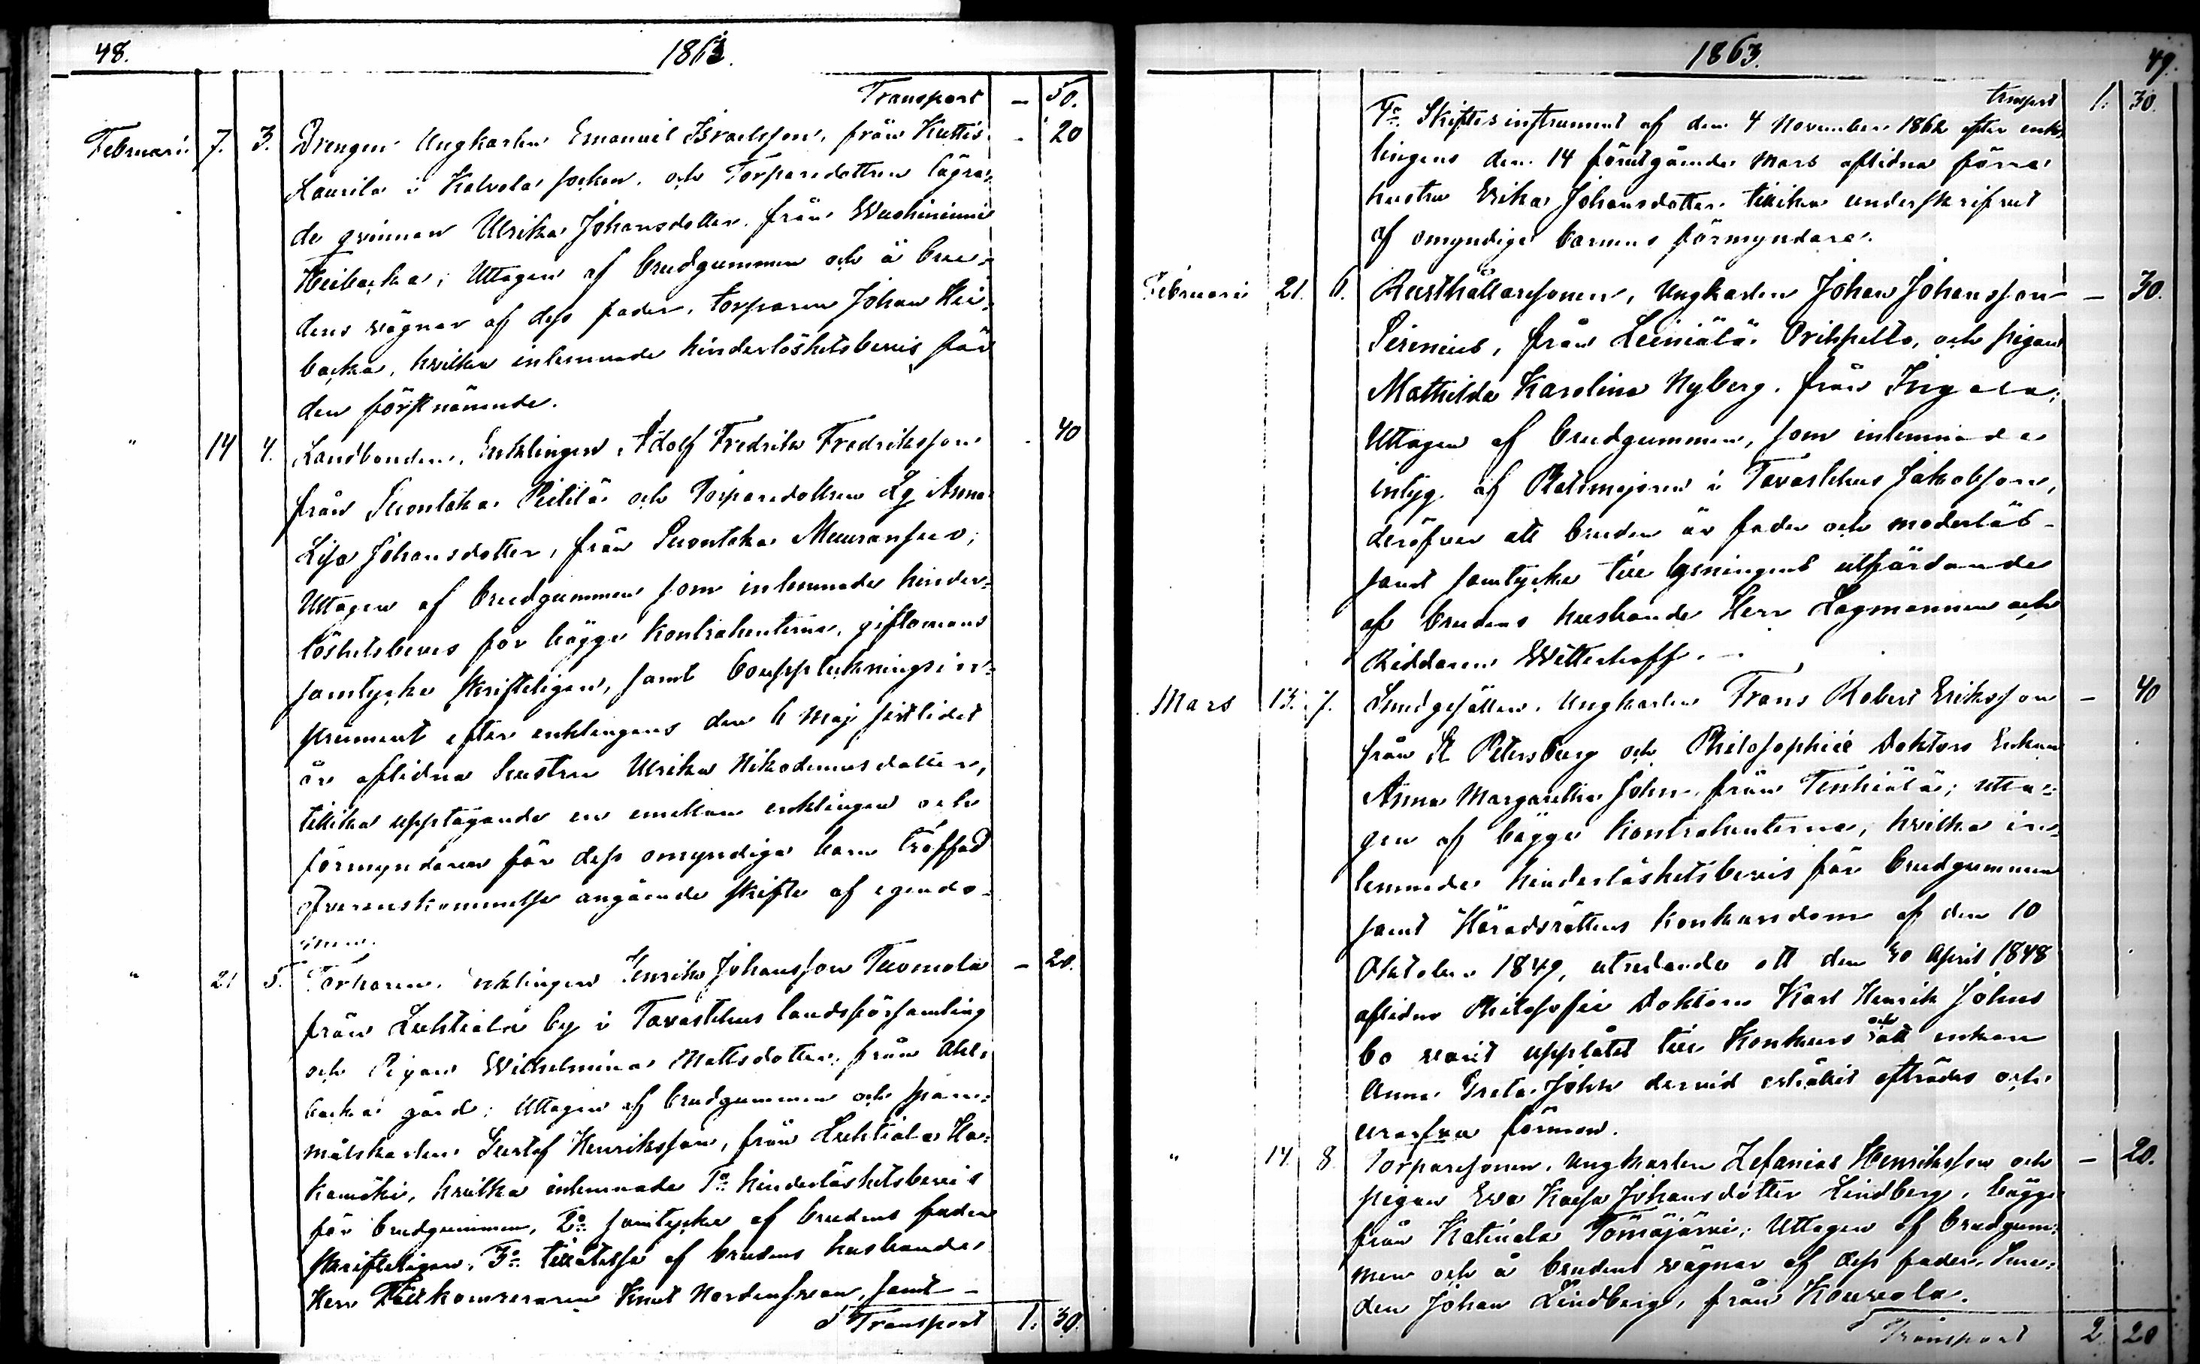 48. 1863.
Transport - 50.
Februari 7. 3. Drengen Ungkarlen Emanuel Israelsson, från Kuttis - 20
Laurila i Kalvola socken, och Torparedottren lägra-
de qvinnan Ulrika Johansdotter från Wuohiniemi
Heibacka; Uttagen af brudgummen och å bru-
dens vägnar af dess fader, torparen Johan Hei-
backa, hvilka inlemnade hinderlöshetsbevis för
den förstnämnde.
" 14 4. Landbonden, Enklingen Adolf Fredrik Fredriksson - 40
från Suontaka Pietilä och Torparedottren Anna
Lisa Johansdotter, från Suontaka
Uttagen af brudgummen som inlemnade hinder-
löshetsbevis för bägge Kontrahenterna, giftomans
samtycke skrifteligen, samt bouppteckningsin-
strument efter enklingens den 6 Maj sistlidet
år aflidna hustru Ulrika Nikodemusdotter,
tillika upptagande en emellan enklingen och
förmyndaren för dess omyndiga barn träffad
öfverenskommelse angående skifte af egendo-
men.
" 21 5. Torparen, enklingen Henrik Johansson Tuomola - 20.
från Luhtiala by i Tavastehus landsförsamling
och Pigan Wilhelmina Mattsdotter, från Ahl-
backa gård; Uttagen af brudgummen och spane-
målskarlen Gustaf Henriksson, från Luhtiala Ha-
kamäki, hvilka inlemnade 1o hinderlöshetsbevis
för brudgummen, 2o samtycke af brudens fader
skrifteligen, 3o tillåtelse af brudens husbonde
Herr Knut Nordensvan, samt -
Transport 1. 30.
1863. 49.
transport 1. 30.
4o Skiftesinstrument af den 4 November 1862 efter enk-
lingens den 14 förutgående Mars aflidna förra
hustru Erika Johansdotter tillika underskrifvet
af omyndige barnens förmyndare.
Februari 21. 6. Rusthållaresonen, Ungkarlen Johan Johansson - 30.
Sirenius, från Leiniälä Orihpelto, och pigan
Mathilda Karolina Nyberg, från Ingala;
Uttagen af brudgummen, som inlemnade
intyg af Platsmajoren i Tavastehus Jakobson,
deröfver att bruden är fader och moderlös
samt samtycke till lysningens utfärdande
af brudens husbonde Herr Lagmannen och
Riddaren Wetterhoff. -
Mars 13. 7. Smedgesällen, Ungkarlen Frans Robert Eriksson - 40
från St Petersburg och Philosophiæ Doktors Enkan
Anna Margaretha John från Tenhiälä; utta-
gen af bägge Kontrahenterna, hvilka in-
lemnade hinderlöshetsbevis för brudgummen
samt Häradsrättens Konkursdom af den 10
Oktober 1849, utredande att den 30 April 1848
aflidne Philosofie Doktorn Karl Henrik Johns
bo varit upplåtet till Konkurs och att enkan
Anna Greta John dervid erhållit afträdes och
urarfva förmån.
" 14. 8 Torparesonen, Ungkarlen Zefanias Henriksson och - 20.
pigan Eva Kaisa Johansdotter Lindberg, bägge
från Katinala Tömäjärvi; Uttagen af brudgum-
men och å brudens vägnar af dess fader, Sme-
den Johan Lindberg, från Kouvola.
Transport 2. 20